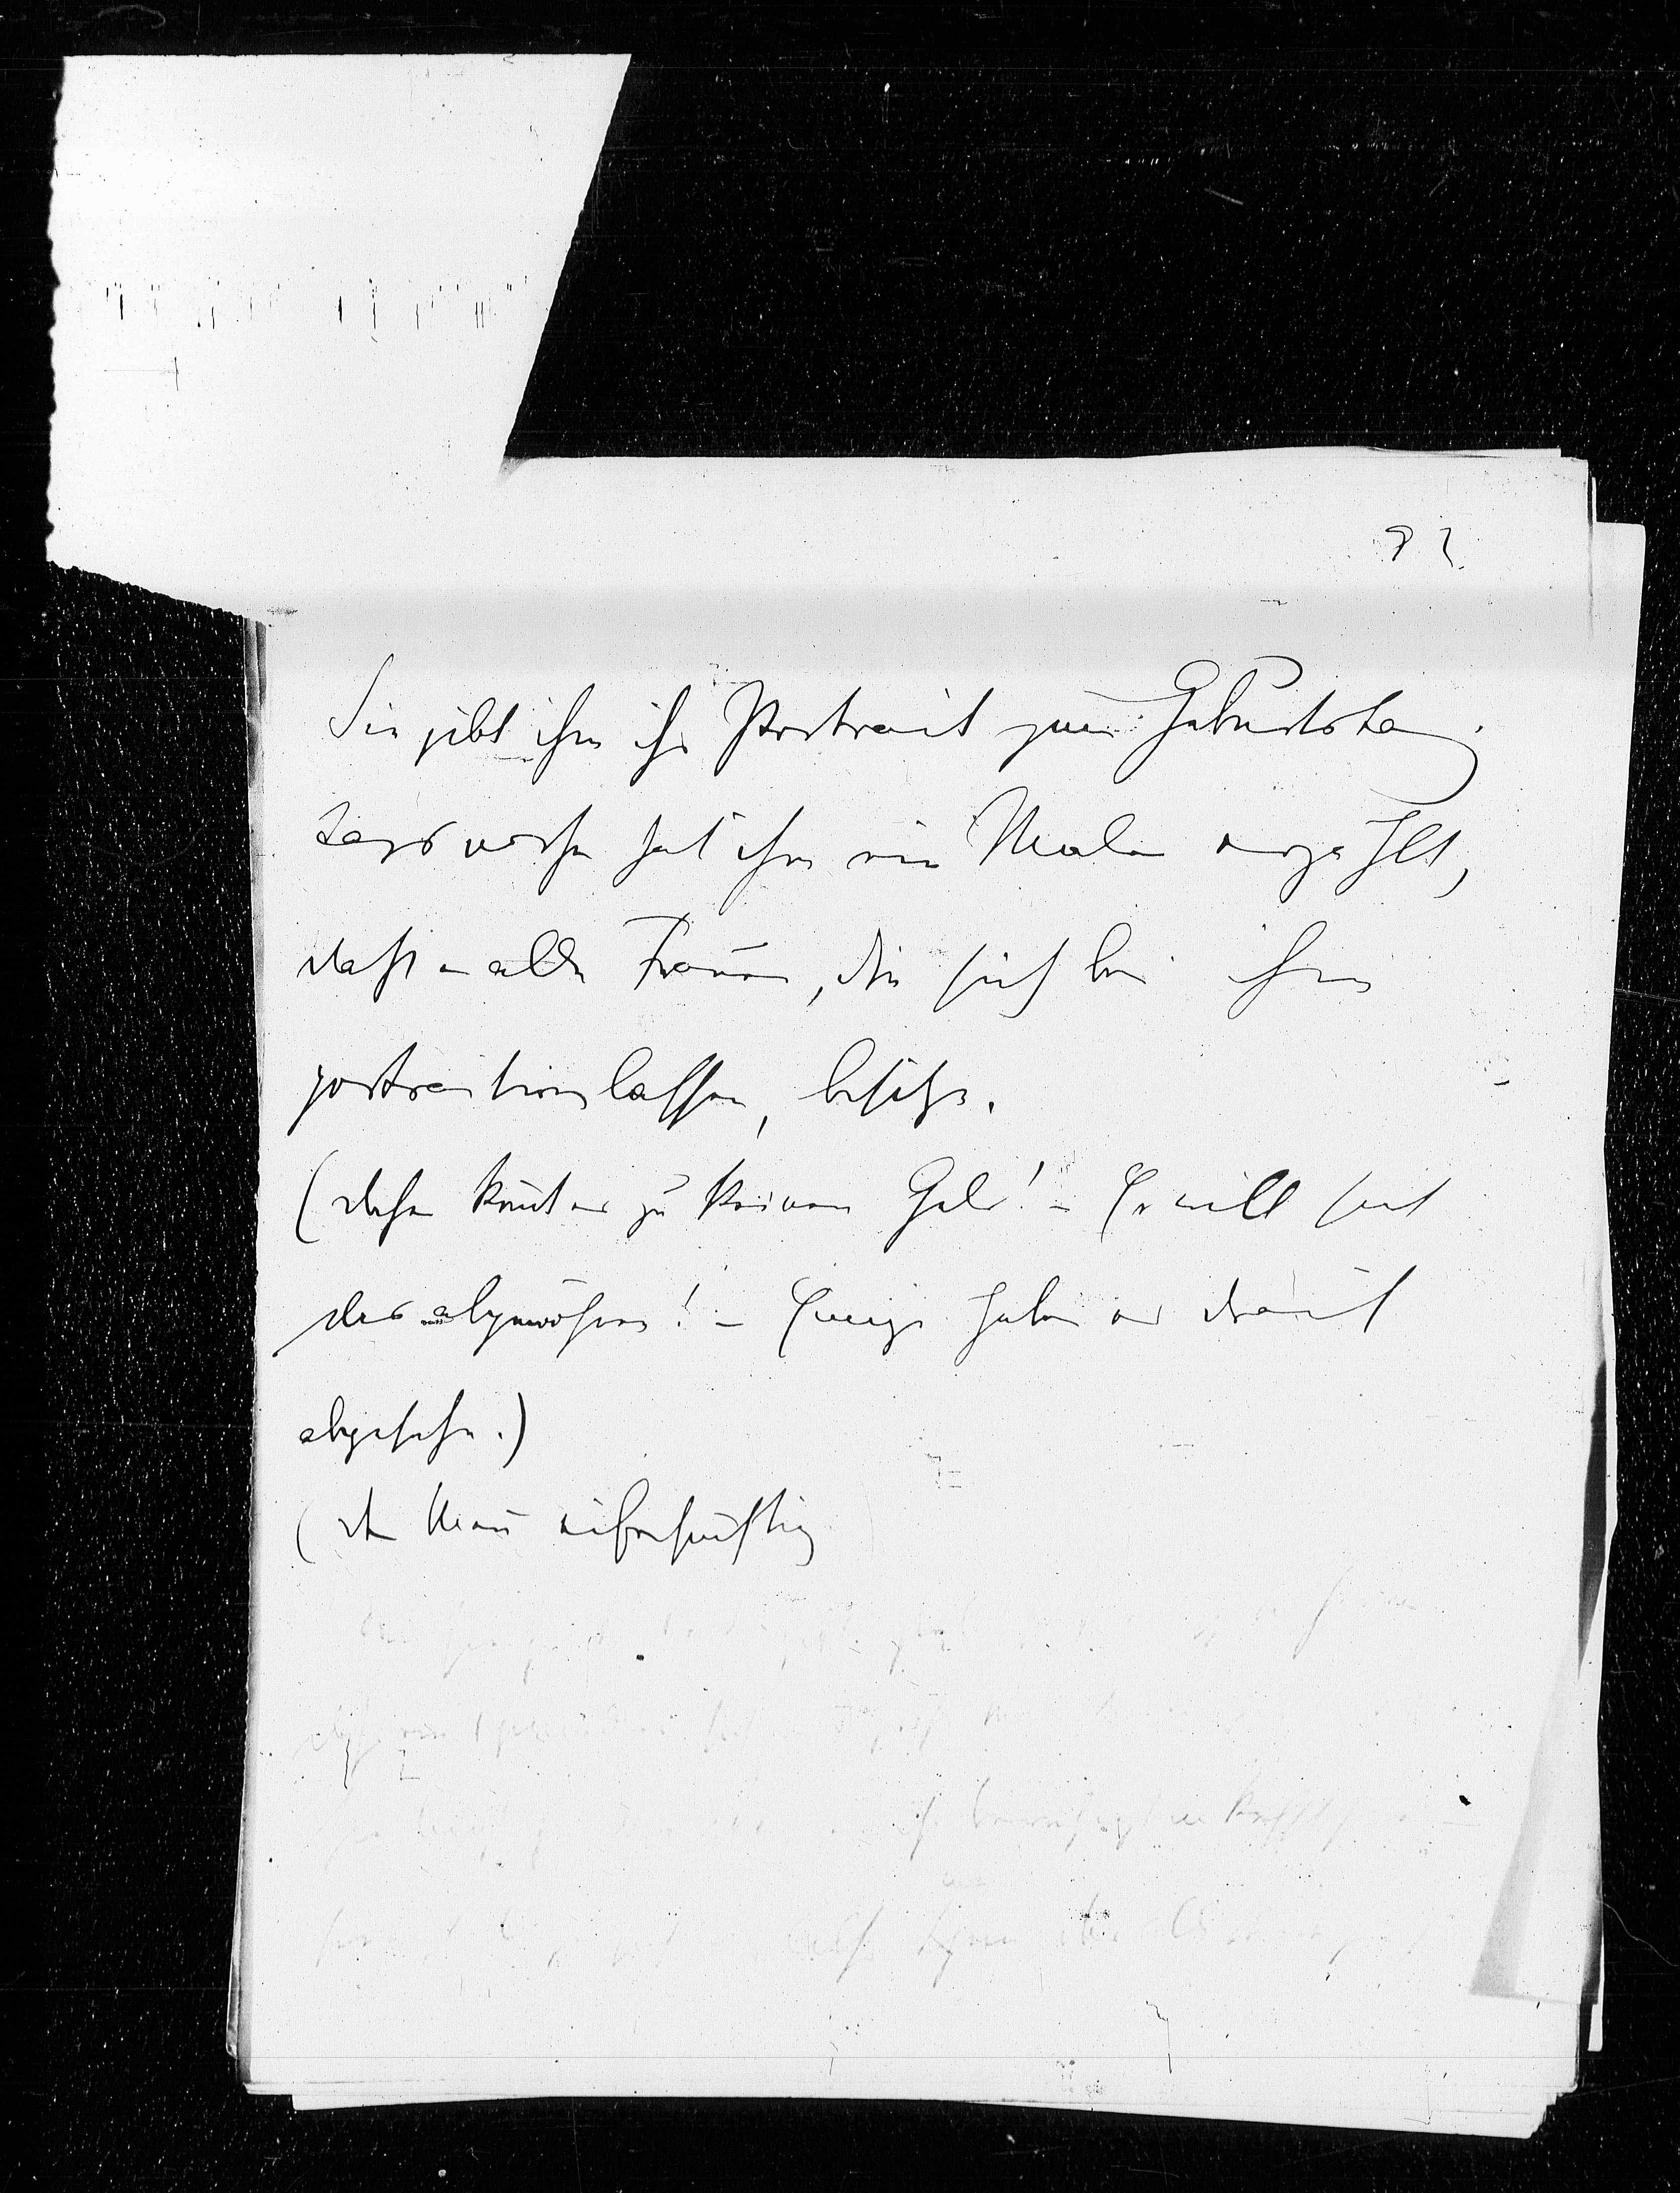 82
Sie gibt ihm ihr Portrait zum Geburtstag.
Tags vorher hat ihm ein Maler erzählt,
dass er alle Frauen, die sich bei ihm
portraitiren lassen, besitze.
(Daher kommt er zu keinem Geld! – Er will sich
das abgewöhnen! – Einige haben es drauf
abgesehn.)
(Der Mann eifersüchtig